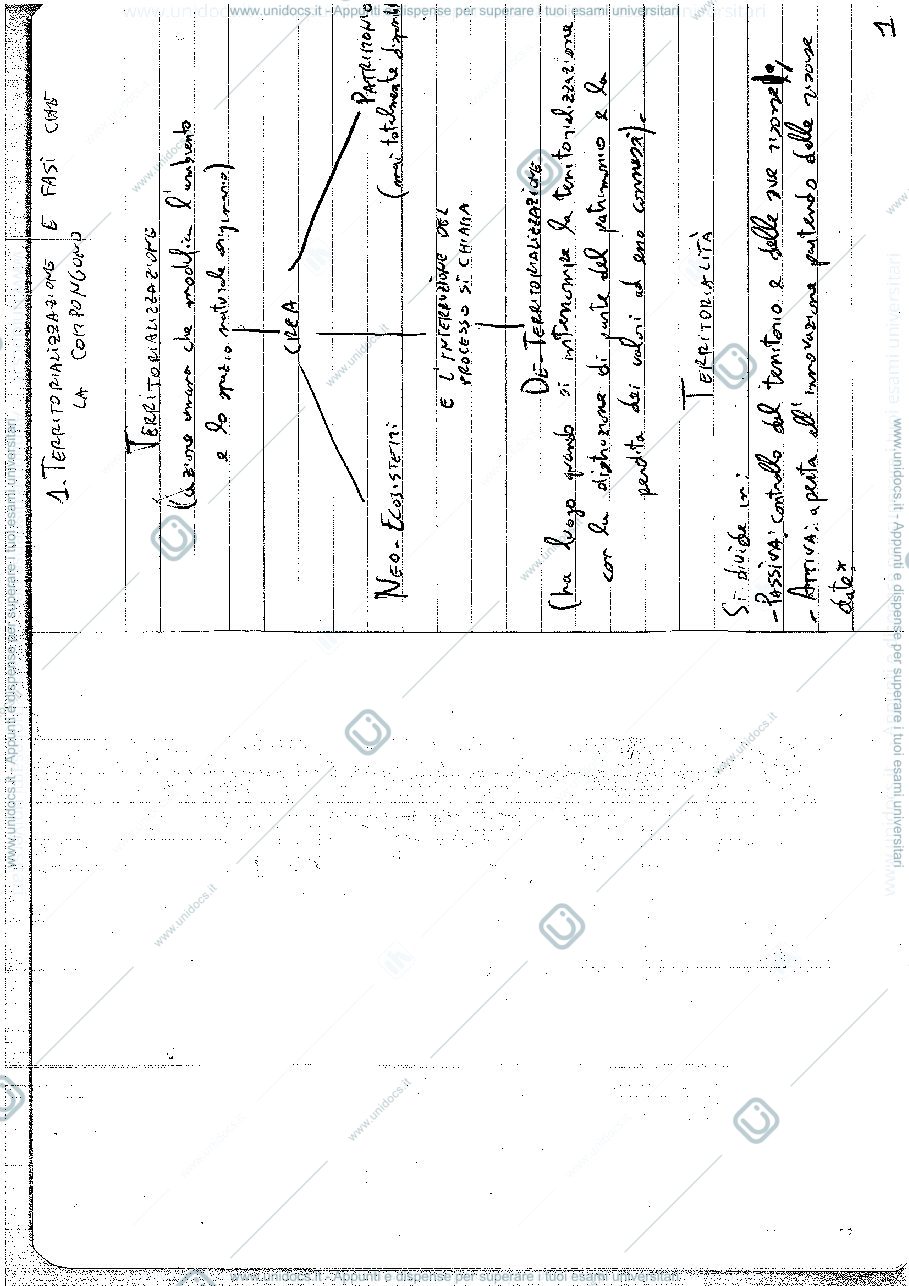 1
1. TERRITORIALIZZAZIONE E FASI CHE
LA COMPONGONO
TERRITORIALIZZAZIONE
(azione umana che modifica l'ambiente
e lo spazio naturale originario)
CREA
PATRIMONIO
(mai totalmente disponibile
NEO-ECOSISTEMI
E L'INTERUZIONE DEL
PROCESSO SI CHIAMA
DE-TERRITORIALIZZAZIONE
(ha luogo quando si interrompe la territorializzazione
con la distruzione di parte del patrimonio e la
perdita dei valori ad esso connessi).
TERRITORIALITÀ
Si divide in:
- PASSIVA: controllo del territorio e delle sue risorse
- ATTIVA: aperta all'innovazione partendo delle risorse
date.
www.unidocs.it - Appunti e dispense per superare i tuoi esami universitari
www.unidocs.it - Appunti e dispense per superare i tuoi esami universitari
www.unidocs.it - Appunti e dispense per superare i tuoi esami universitari
www.unidocs.it - Appunti e dispense per superare i tuoi esami universitari
www.unidocs.it
www.unidocs.it
www.unidocs.it
www.unidocs.it
www.unidocs.it
www.unidocs.it